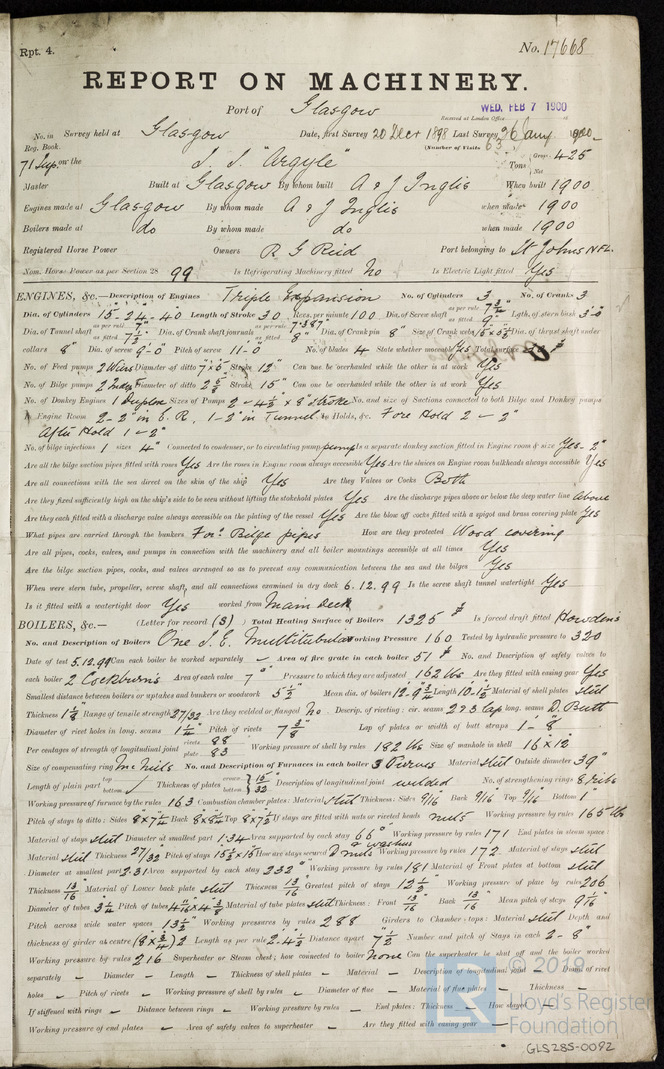 Rpt. 4. No. 17668
REPORT ON MACHINERY.
Port of Glasgow WED. FEB 7 1900
Received at London Office
No. in Survey held at Glasgow Date, first Survey 20 Decr 1898 Last Survey 1900
Reg. Book. (Number of Visits 63)
71 Sup. on the S. S. "Argyle" Tons Gross 425 Net
Master Built at Glasgow By whom built A & J Inglis When built 1900
Engines made at Glasgow By whom made A & J Inglis when made 1900
Boilers made at do By whom made do when made 1900
Registered Horse Power Owners R. G Reid Port belonging to St Johns NFL.
Nom. Horse Power as per Section 28 99 Is Refrigerating Machinery fitted No Is Electric Light fitted Yes
ENGINES, &c.—Description of Engines Triple Expansion No. of Cylinders 3 No. of Cranks 3
Dia. of Cylinders 15"-24-40 Length of Stroke 30 Revs. per minute 100 Dia. of Screw shaft as per rule 7 3/4 as fitted 9" Lgth. of stern bush 3'-0"
Dia. of Tunnel shaft as per rule 7" as fitted 7 1/2" Dia. of Crank shaft journals as per rule 7.387" as fitted 8" Dia. of Crank pin 8" Size of Crank webs Dia. of thrust shaft under
collars 8" Dia. of screw 9'-0" Pitch of screw 11-0" No. of blades 4 State whether moveable Yes Total surface
No. of Feed pumps 2 Diameter of ditto 7 x 5 Stroke 12" Can one be overhauled while the other is at work Yes
No. of Bilge pumps 2 Diameter of ditto Stroke 15" Can one be overhauled while the other is at work Yes
No. of Donkey Engines 1 Duplex Sizes of Pumps 2 - 4 1/2 x 8" stroke No. and size of Suctions connected to both Bilge and Donkey pumps
In Engine Room 2-2" in E. R. 1-2" in Tunnel In Holds, &c. Fore Hold 2 - 2"
After Hold 1 - 2"
No. of bilge injections 1 sizes 4" Connected to condenser, or to circulating pump pump Is a separate donkey suction fitted in Engine room & size Yes - 2"
Are all the bilge suction pipes fitted with roses Yes Are the roses in Engine room always accessible Yes Are the sluices on Engine room bulkheads always accessible Yes
Are all connections with the sea direct on the skin of the ship Yes Are they Valves or Cocks Both
Are they fixed sufficiently high on the ship's side to be seen without lifting the stokehold plates Yes Are the discharge pipes above or below the deep water line above
Are they each fitted with a discharge valve always accessible on the plating of the vessel Yes Are the blow off cocks fitted with a spigot and brass covering plate Yes
What pipes are carried through the bunkers For'd Bilge pipes How are they protected Wood covering
Are all pipes, cocks, valves, and pumps in connection with the machinery and all boiler mountings accessible at all times Yes
Are the bilge suction pipes, cocks, and valves arranged so as to prevent any communication between the sea and the bilges Yes
When were stern tube, propeller, screw shaft, and all connections examined in dry dock 6.12.99 Is the screw shaft tunnel watertight Yes
Is it fitted with a watertight door Yes worked from Main Deck
BOILERS, &c.— (Letter for record (S) ) Total Heating Surface of Boilers 1325 Is forced draft fitted Howden's
No. and Description of Boilers One S. E. Multitubular Working Pressure 160 Tested by hydraulic pressure to 320
Date of test 5.12.99 Can each boiler be worked separately — Area of fire grate in each boiler 51 No. and Description of safety valves to
each boiler 2 Cockburn's Area of each valve 7" Pressure to which they are adjusted 162 lbs Are they fitted with easing gear Yes
Smallest distance between boilers or uptakes and bunkers or woodwork 5 1/2" Mean dia. of boilers 12-9 3/4 Length 10-1 1/2 Material of shell plates steel
Thickness 1 1/8 Range of tensile strength 27/32 Are they welded or flanged No Descrip. of riveting: cir. seams 2 & 3 Lap long. seams D. Butt
Diameter of rivet holes in long. seams 1 1/4" Pitch of rivets 7 3/8 Lap of plates or width of butt straps 1 - 8
Per centages of strength of longitudinal joint rivets 88 plate 83 Working pressure of shell by rules 182 lbs Size of manhole in shell 16 x 12"
Size of compensating ring McNeils No. and Description of Furnaces in each boiler 3 Purves Material steel Outside diameter 39"
Length of plain part top bottom Thickness of plates crown bottom 15/32 Description of longitudinal joint welded No. of strengthening rings 8 ribs
Working pressure of furnace by the rules 163 Combustion chamber plates: Material steel Thickness: Sides 9/16 Back 9/16 Top 9/16 Bottom 1"
Pitch of stays to ditto: Sides 8 x 7 1/4 Back Top 8 x 7 1/2 If stays are fitted with nuts or riveted heads nuts Working pressure by rules 165 lb
Material of stays steel Diameter at smallest part 1.34 Area supported by each stay 66" Working pressure by rules 171 End plates in steam space:
Material steel Thickness 27/32 Pitch of stays 15 1/2 x 15 How are stays secured D nuts & washers Working pressure by rules 172 Material of stays steel
Diameter at smallest part 2.31 Area supported by each stay 232" Working pressure by rules 181 Material of Front plates at bottom steel
Thickness 13/16 Material of Lower back plate steel Thickness 13/16 Greatest pitch of stays 12 1/2 Working pressure of plate by rules 206
Diameter of tubes 3 1/4 Pitch of tubes Material of tube plates steel Thickness: Front 13/16 Back 13/16 Mean pitch of stays 9 1/16
Pitch across wide water spaces 13 1/2" Working pressures by rules 288 Girders to Chamber tops: Material steel Depth and
thickness of girder at centre (8 x 3/4) 2 Length as per rule 2-4 1/2 Distance apart 7 1/2 Number and pitch of Stays in each 2 - 8"
Working pressure by rules 216 Superheater or Steam chest; how connected to boiler None Can the superheater be shut off and the boiler worked
separately — Diameter — Length — Thickness of shell plates — Material — Description of longitudinal joint — Diam. of rivet
holes — Pitch of rivets — Working pressure of shell by rules — Diameter of flue — Material of flue plates — Thickness —
If stiffened with rings — Distance between rings — Working pressure by rules — End plates: Thickness — How stayed
Working pressure of end plates — Area of safety valves to superheater — Are they fitted with easing gear —
© 2019
Lloyd's Register
Foundation
GLS285-0092